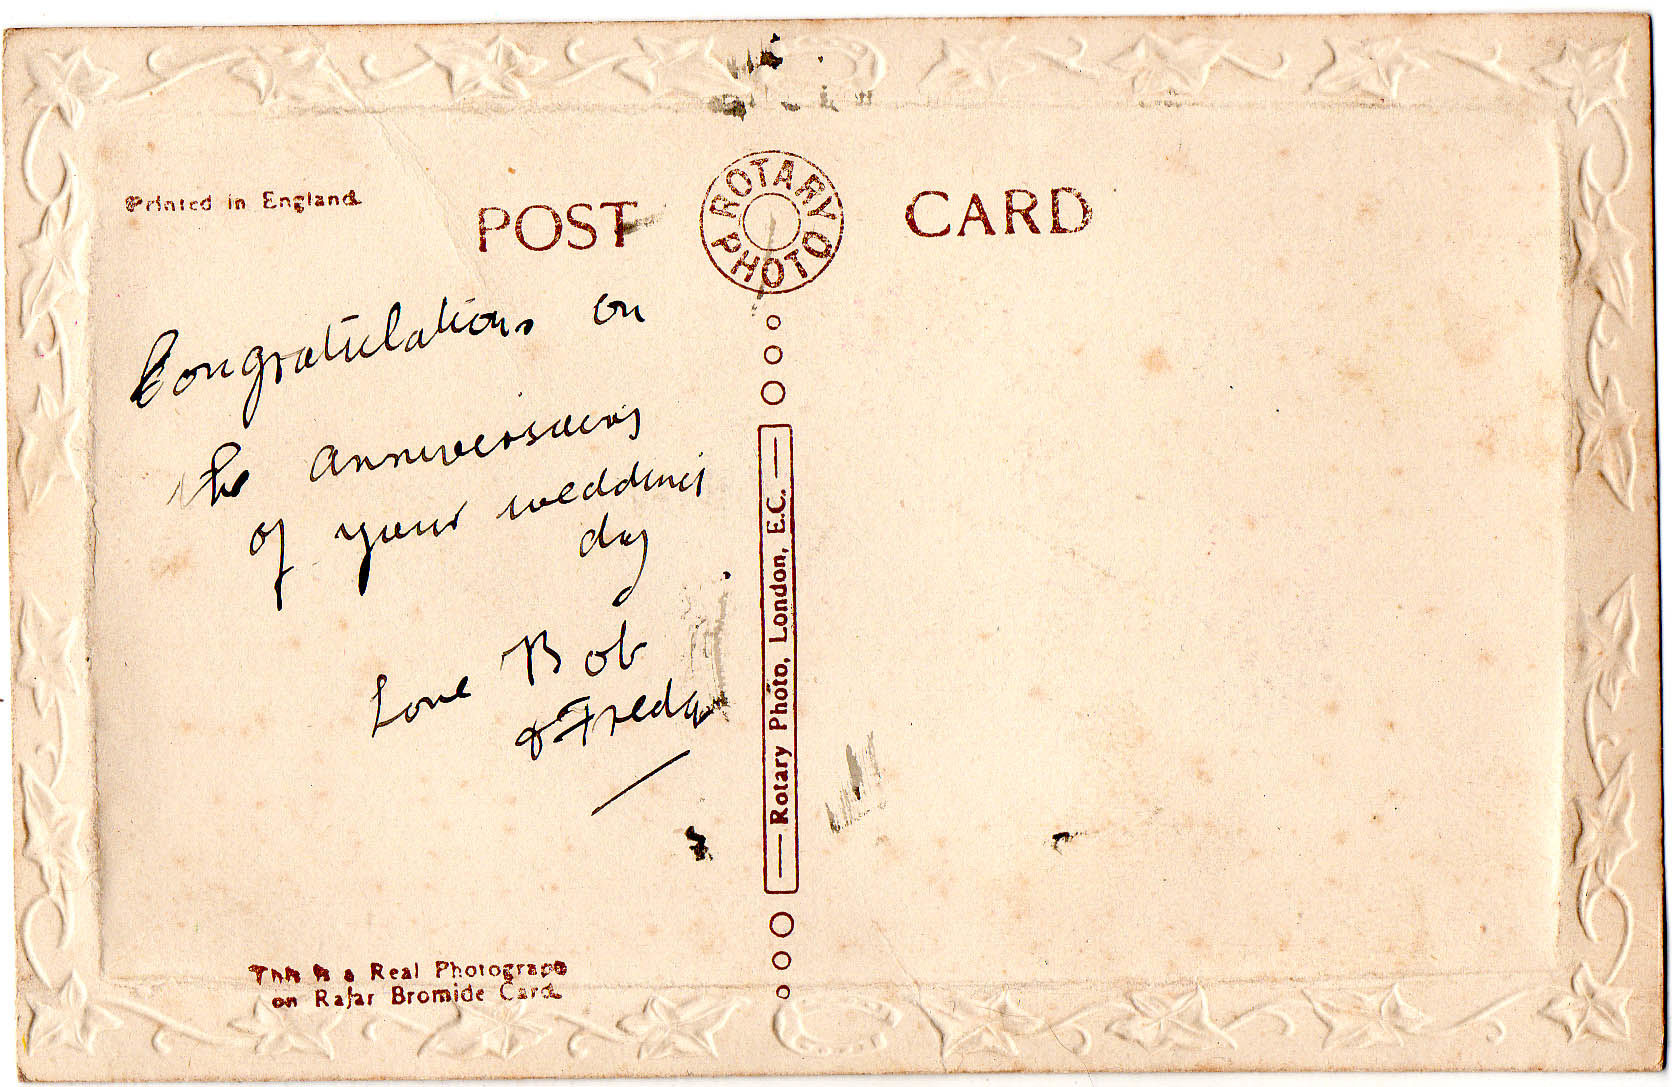 Printed in England.
POST CARD
ROTARY PHOTO
Congratulations on
the anniversary
of your wedding
day
Love Bob
& Freda
Rotary Photo, London, E.C.
This is a Real Photograph
on Rajar Bromide Card.